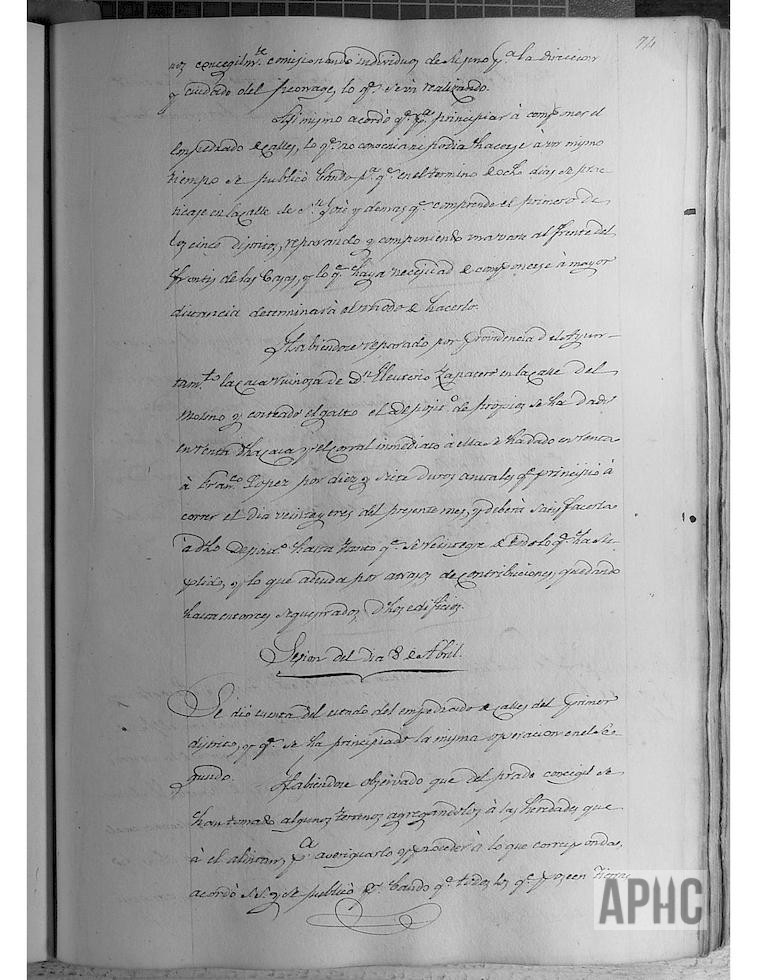 74
concegilm.te comisionando individuos de su seno p.a la direccion
y cuidado del freonage, lo q.e se irá realizando.
Asi mismo acordó q.e p.a principiar á componer el
empedrado de calles, lo q.e no convenia ni podia hacerse á un mismo
tiempo se publicó bando p.a q.e en el termino de ocho dias se prac
ticase en la calle de S.n José y demas q.e comprende el primero de
los cinco distritos, reparando y componiendo una vara al frente del
frontis de las Casas, y lo q.e haya necesidad de componerse á mayor
distancia determinará el modo de hacerlo.
Habiendose reparado por Providencia del Ayun-
tam.to la casa ruinosa de D.n Eleuterio Zapatero en la calle del
Molino y costeado el gasto el deposit.o de propios se ha dado
en renta dha casa y el corral inmediato á ella se ha dado en renta
á Fran.co Lopez por diez y siete duros anuales q.e principió á
correr el dia veinte y tres del presente mes, y deberá satisfacerla
á dho Deposit.o hasta tanto q.e se reintegre de todo lo q.e ha su-
plido, y lo que adeuda por atrasos de contribuciones, quedando
hasta entonces sequestrados dhos edificios.
Sesion del dia 8 de Abril.
Se dio cuenta del estado del empedrado de calles del Primer
distrito, y q.e se ha principiado la misma operacion en el Se-
gundo. Habiendose observado que del prado concegil se
han tomado algunos terrenos agregandolos á las heredades que
á el alintan, p.a averiguarlo y proceder á lo que corresponda,
acordó S.S. q.e se publicó bando q.e todos los q.e poseen tierras
APHC